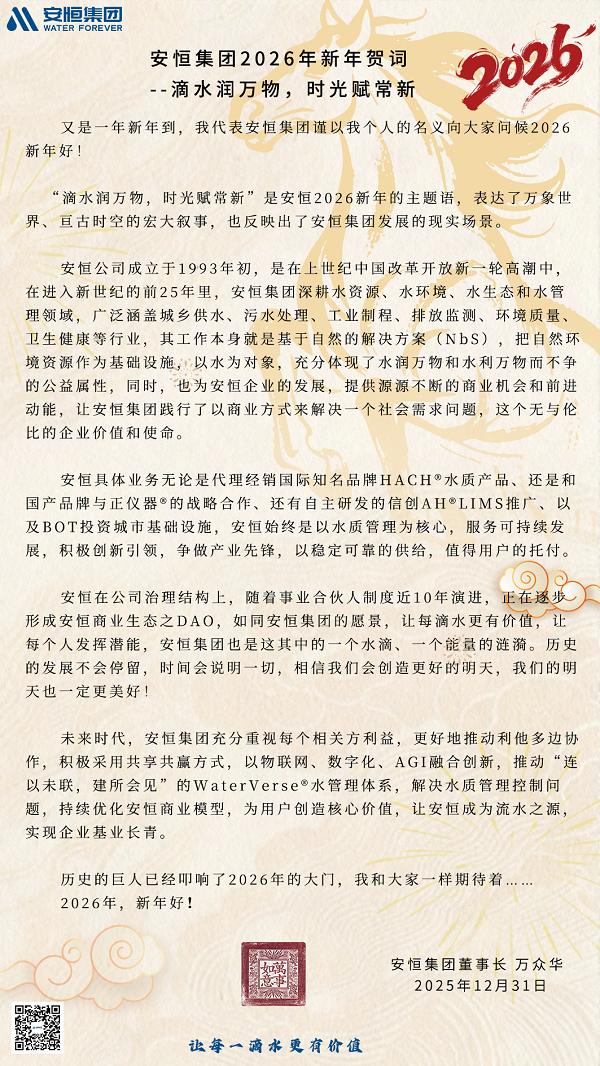 安恒集团
WATER FOREVER
安恒集团2026年新年贺词
--滴水润万物，时光赋常新
2026
又是一年新年到，我代表安恒集团谨以我个人的名义向大家问候2026
新年好！
“滴水润万物，时光赋常新”是安恒2026新年的主题语，表达了万象世
界、亘古时空的宏大叙事，也反映出了安恒集团发展的现实场景。
安恒公司成立于1993年初，是在上世纪中国改革开放新一轮高潮中，
在进入新世纪的前25年里，安恒集团深耕水资源、水环境、水生态和水管
理领域，广泛涵盖城乡供水、污水处理、工业制程、排放监测、环境质量、
卫生健康等行业，其工作本身就是基于自然的解决方案（NbS），把自然环
境资源作为基础设施，以水为对象，充分体现了水润万物和水利万物而不争
的公益属性，同时，也为安恒企业的发展，提供源源不断的商业机会和前进
动能，让安恒集团践行了以商业方式来解决一个社会需求问题，这个无与伦
比的企业价值和使命。
安恒具体业务无论是代理经销国际知名品牌HACH®水质产品、还是和
国产品牌与正仪器®的战略合作、还有自主研发的信创AH®LIMS推广、以
及BOT投资城市基础设施，安恒始终是以水质管理为核心，服务可持续发
展，积极创新引领，争做产业先锋，以稳定可靠的供给，值得用户的托付。
安恒在公司治理结构上，随着事业合伙人制度近10年演进，正在逐步
形成安恒商业生态之DAO，如同安恒集团的愿景，让每滴水更有价值，让
每个人发挥潜能，安恒集团也是这其中的一个水滴、一个能量的涟漪。历史
的发展不会停留，时间会说明一切，相信我们会创造更好的明天，我们的明
天也一定更美好！
未来时代，安恒集团充分重视每个相关方利益，更好地推动利他多边协
作，积极采用共享共赢方式，以物联网、数字化、AGI融合创新，推动“连
以未联，建所会见”的WaterVerse®水管理体系，解决水质管理控制问
题，持续优化安恒商业模型，为用户创造核心价值，让安恒成为流水之源，
实现企业基业长青。
历史的巨人已经叩响了2026年的大门，我和大家一样期待着……
2026年，新年好！
萬事如意
安恒集团董事长 万众华
2025年12月31日
让每一滴水更有价值